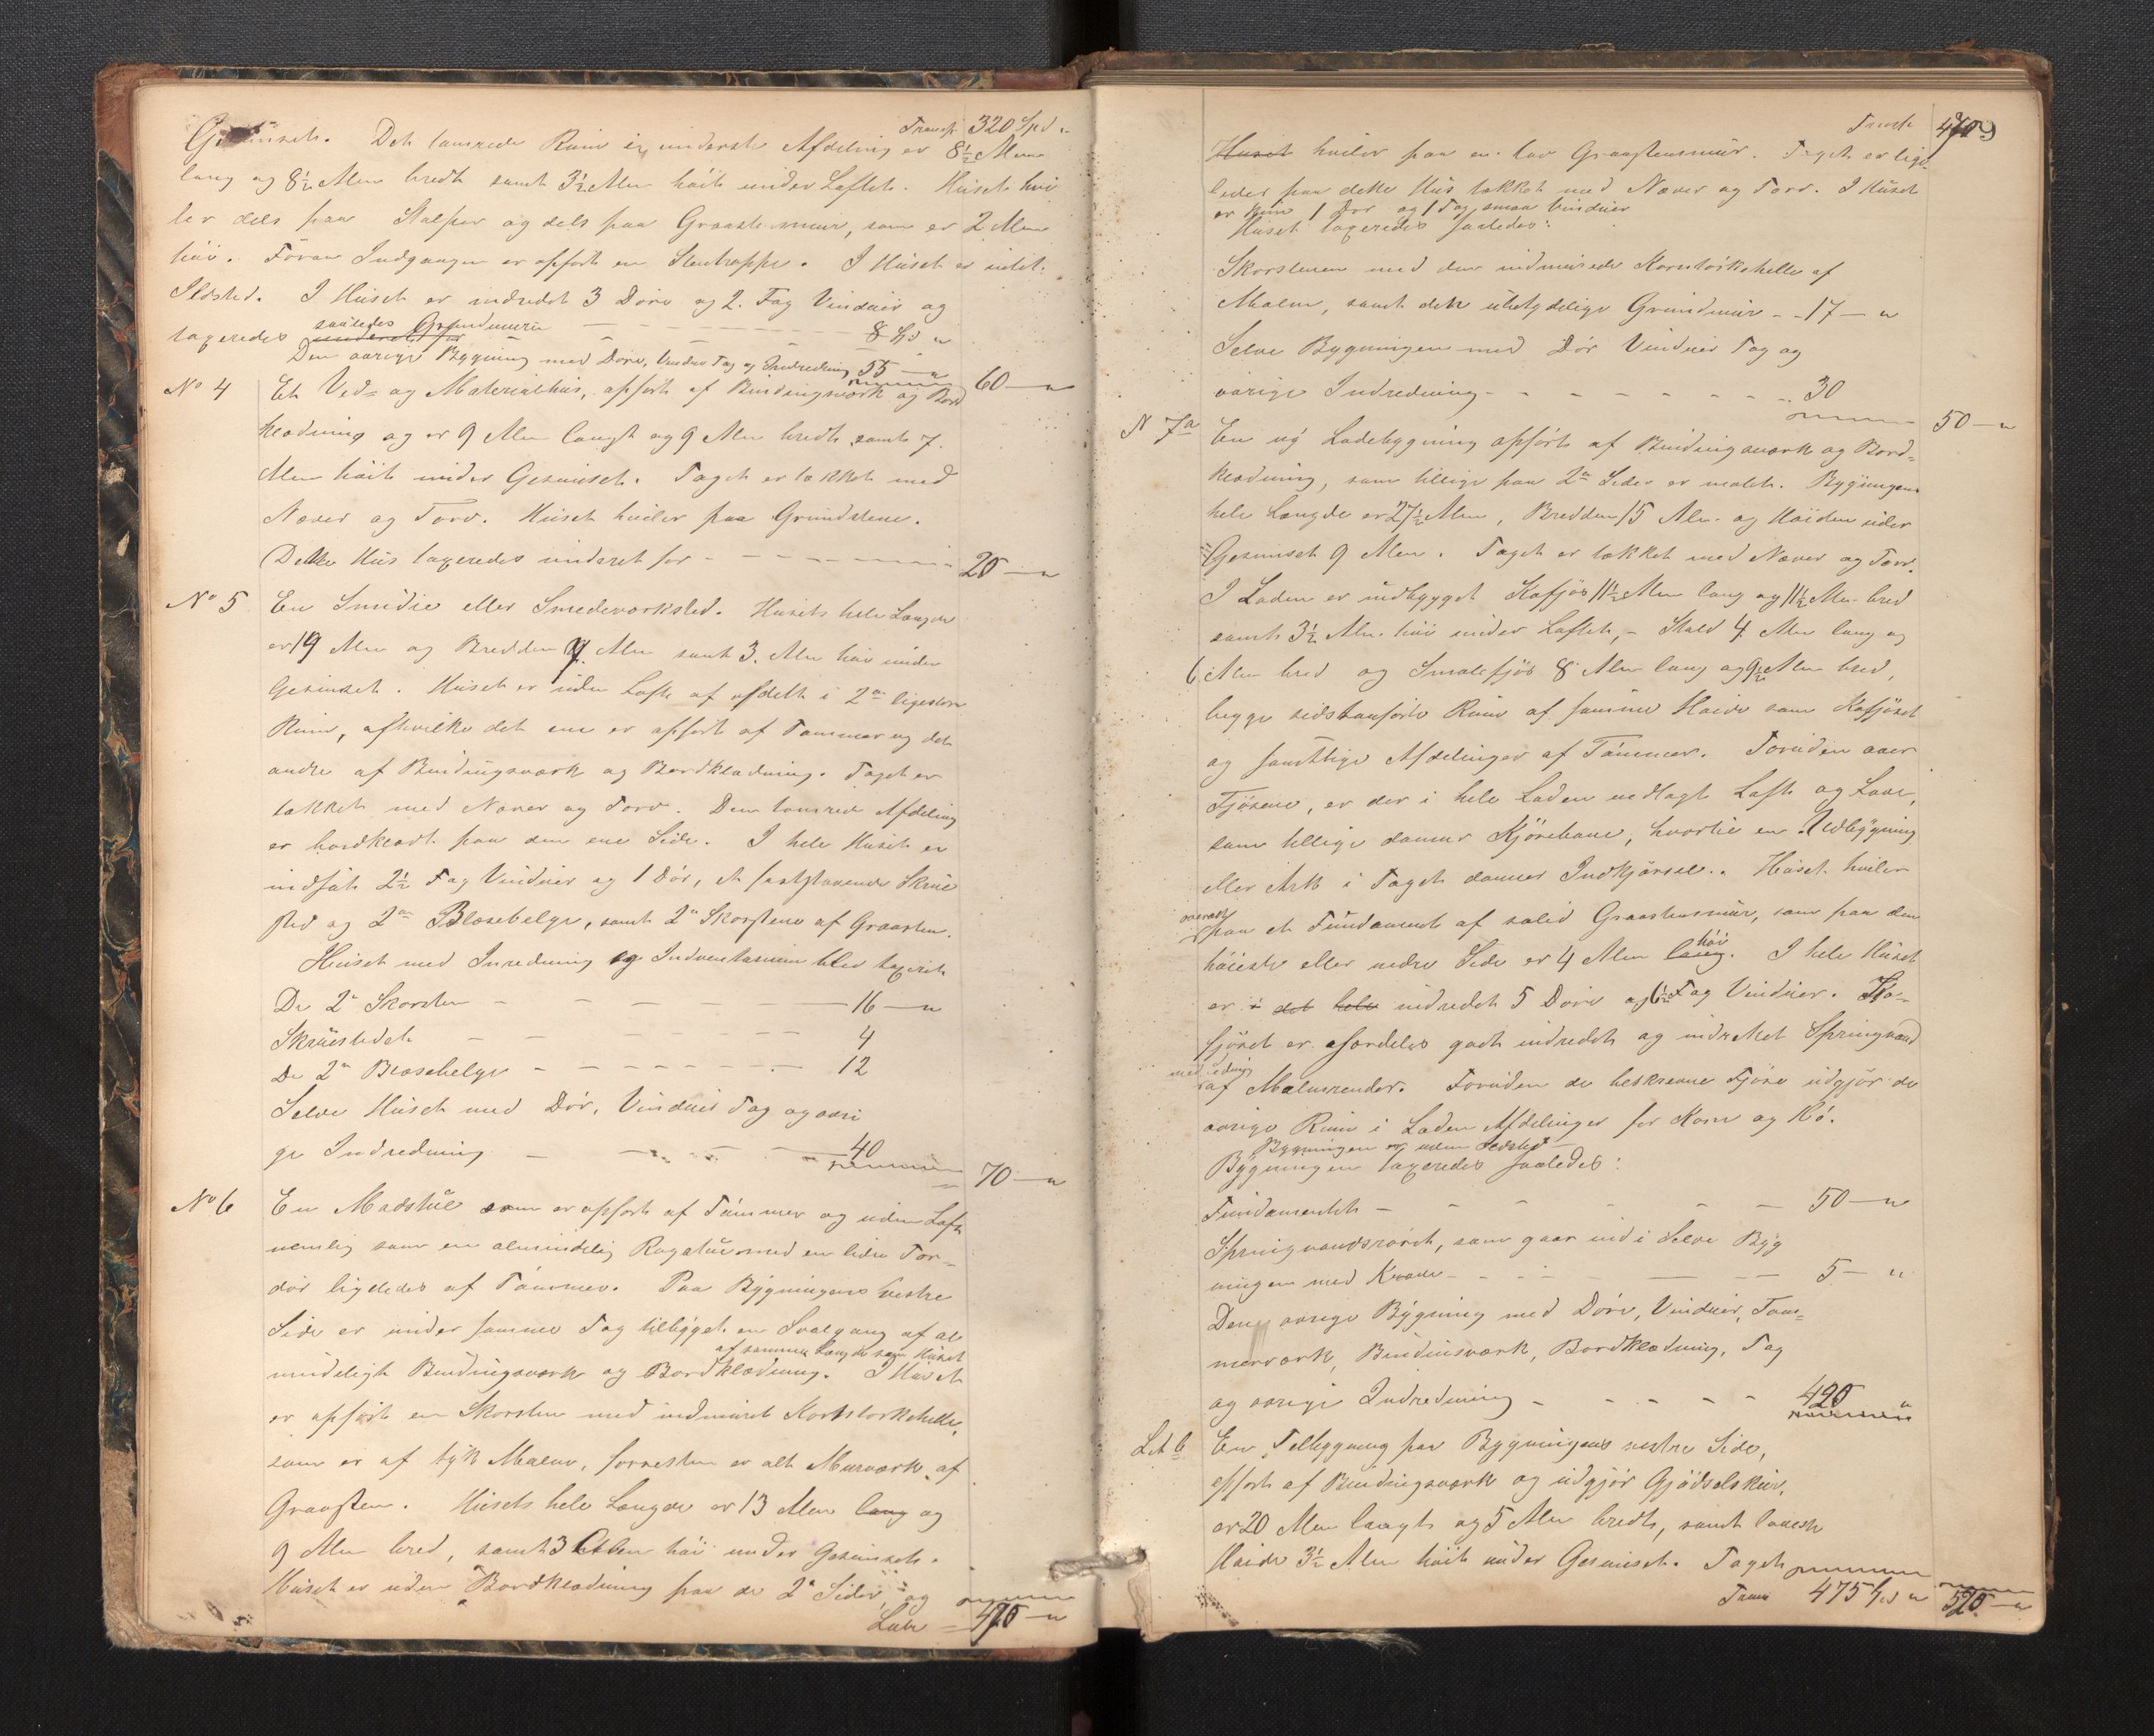 Transp. 320 Spd "
Gesimset. Det tømrede Rum i underste Afdeling er 8½ Alen
lang og 8½ Alen bredt samt 3½ Alen høit under Loftet. Huset hvi
ler dels paa Stolper og dels paa Graastensmuur, som er 2 Alen
høi. Foran Indgangen er opført en Stentrappe. I Huset er intet
Ildsted. I Huset er indredet 3 Døre og 2 Fag Vinduer og
taxeredes saaledes Grundmuren — — — 8 Spd "
Den øvrige Bygning med Døre, Vinduer Tag og Indredning 55 — "
60 — "
No 4 Et Ved- og Materialhus, opført af Bindingsværk og Bord
klædning og er 9 Alen langt og 9 Alen bredt samt 7
Alen høit under Gesimset. Taget er tækket med
Næver og Torv. Huset hviler paa Grundstene.
Dette Hus taxeredes underet for — — — 20 — "
No 5 En Smidie eller Smedeværksted. Husets hele Længde
er 19 Alen og Bredden 9 Alen samt 3 Alen høi under
Gesimset. Huset er uden Loft af afdelt i 2de ligestore
Rum, afhvilke det ene er opført af Tømmer og det
andre af Bindingsværk og Bordklædning. Taget er
tækket med Næver og Torv. Den tømrede Afdeling
er bordklædt paa den ene Side. I hele Huset er
indsat 2½ Fag Vinduer og 1 Dør, et fastståaende Skrue
sted og 2de Blæsebelge, samt 2de Skorstene af Graasten.
Huset med Inredning og Indventarium blev taxeret
De 2de Skorsten — — — 16 — "
Skruestedet — — — 4
De 2de Blæsebelge — — — 12
Selve Huset med Dør, Vinduer Tag og øvri
ge Indredning — — — 40
70 — "
No 6 En Madstue som er opført af Tømmer og uden Loft
nemlig som en almindelig Røgstue med en liden For-
dør ligeledes af Tømmer. Paa Bygningens vestre
Side er under samme Tag tilbygget en Svalgang af al
af samme Længde som Huset
mindeligt Bindingsværk og Bordklædning. I Huset
er opført en Skorsten med indmuret Korntørkehelle,
som er af tyk Malm, forresten er alt Murværk af
Graasten. Husets hele Længde er 13 Alen lang og
9 Alen bred, samt 3 Alen høi under Gesimset.
Huset er uden Bordklædning paa de 2de Sider, og
Latr 470 — "
Transp. 470
Huset hviler paa en lav Graastensmur. Taget er lige-
ledes paa dette Hus tækket med Næver og Torv. I Huset
er kun 1 Dør og 1 Fag smaa Vinduer
Huset taxeredes saaledes:
Skorstenen med den indmurede Korntørkehelle af
Malm, samt den ubetydelige Grundmur — 17 — "
Selve Bygningen med Dør Vinduer Tag og
øvrige Indredning — — — 30
50 — "
N 7a En ny Ladebygning opført af Bindingsværk og Bord-
klædning, som tillige paa 2de Sider er malet. Bygningens
hele Længde er 27½ Alen, Bredden 15 Alen og Høiden under
Gesimset 9 Alen. Taget er tækket med Næver og Torv.
I Laden er indbygget Kofjøs 11½ Alen lang og 11½ Alen bred
samt 3½ Alen høi under Loftet, — Stald 4 Alen lang og
6 Alen bred og Smalefjøs 8 Alen lang og 9½ Alen bred,
begge sidstanførte Rum af samme Høide som Kofjøset
og samtlige Afdelinger af Tømmer. Foruden over
Fjøsene, er der i hele Laden nedlagt Loft og Lave,
som tillige danner Kjørebane, hvortil en Udbygning
eller Ark i Taget danner Indkjørsel. Huset hviler
overalt paa et Fundament af solid Graastensmur, som paa den
høieste eller nedre Side er 4 Alen lang høi. I hele Huset
er i det hele indredet 5 Døre og 6½ Fag Vinduer. Ko-
fjøset er særdeles godt indredet og indrettet Springvand
med Ledning
af Malmrender. Foruden de beskrevne Fjøse udgjør de
øvrige Rum i Laden Afdelinger for Korn og Hø.
Bygningen er uden Ildsted
Bygningen taxeredes saaledes:
Fundamentet — — — 50 — "
Springvandsrøret, som gaar ind i Selve Byg
ningen med Krane — — — 5 — "
Den øvrige Bygning med Døre, Vinduer, Tøm-
merværk, Bindinsværk, Bordklædning, Tag
og øvrige Indredning — — — 420 "
Lit b En Tilbygning paa Bygningens vestre Side,
opført af Bindingsværk og udgjør Gjødselskur,
er 20 Alen langt og 5 Alen bredt, samt laveste
Høide 3½ Alen høit under Gesimset. Taget
Trans 475 Spd " 520 — "